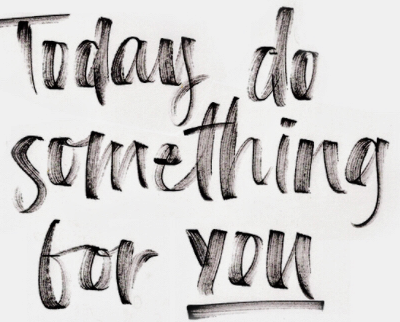 Today do
something
for you